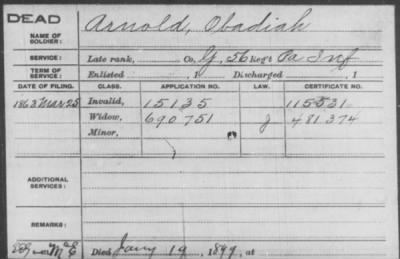 DEAD
NAME OF SOLDIER: Arnold, Obadiah
SERVICE: Late rank, Co. G, 56 Reg't Pa Inf
TERM OF SERVICE: Enlisted , 1 Discharged , 1
DATE OF FILING. CLASS. APPLICATION NO. LAW. CERTIFICATE NO.
1863 Mar 25 Invalid, 15135 115531
Widow, 690751 J 481374
Minor,
ADDITIONAL SERVICES:
REMARKS:
Died Jany 19, 1899, at